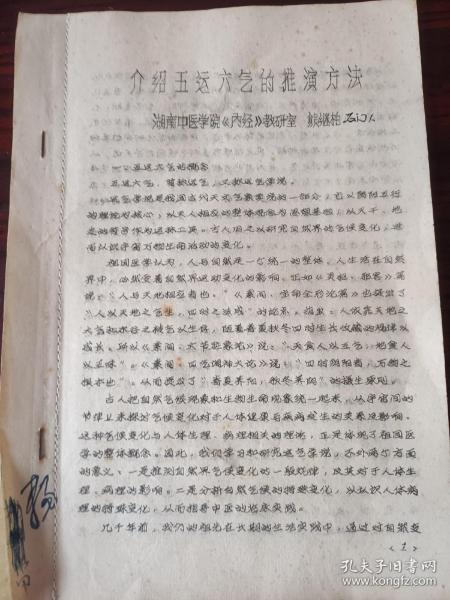 介绍五运六气的推演方法
湖南中医学院《内经》教研室 熊继柏
一、五运六气的概念
五运六气,简称运气,又称运气学说。
运气学说是我国古代天文气象学说的一部分,它以阴阳五行
的理论为核心;以天人相应的整体观念为思想基础;以天干、地
支的符号作为运算工具。古人用之以研究自然界的气候变化,进
而认识宇宙万物生命活动的变化。
祖国医学认为,人与自然是一个统一的整体。人生活在自然
界中,必然受着自然界运动变化的影响。正如《灵枢·邪客》篇
说:“人与天地相应者也。”《素问·宝命全形论篇》也强调了
“人以天地之气生,四时之法成”的论点。指出:人依靠天地之
大气和水谷之精气以生存,随着春夏秋冬四时生长收藏的规律以
成长。所以《素问·六节藏象论》说:“天食人以五气,地食人
以五味”。《素问·四气调神大论》说:“四时阴阳者,万物之
根本也”。从而提出了“春夏养阳,秋冬养阴”的摄生原则。
古人把自然气候现象和生物生命现象统一起来,从宇宙间的
节律上来探讨气候变化对于人体健康与疾病发生的关系及影响。
这种气候变化与人体生理、病理相关的理论,正是体现了祖国医
学的整体观念。因此,我们学习和研究运气学说,不外两个方面
的意义:一是推测自然界气候变化的一般规律,及其对于人体生
理、病理的影响。二是分析自然气候的特殊变化,以认识人体病
理的特殊变化,从而指导中医的临床实践。
几千年前,我们的祖先在长期的生活实践中,通过对自然变
<1>
孔夫子旧书网